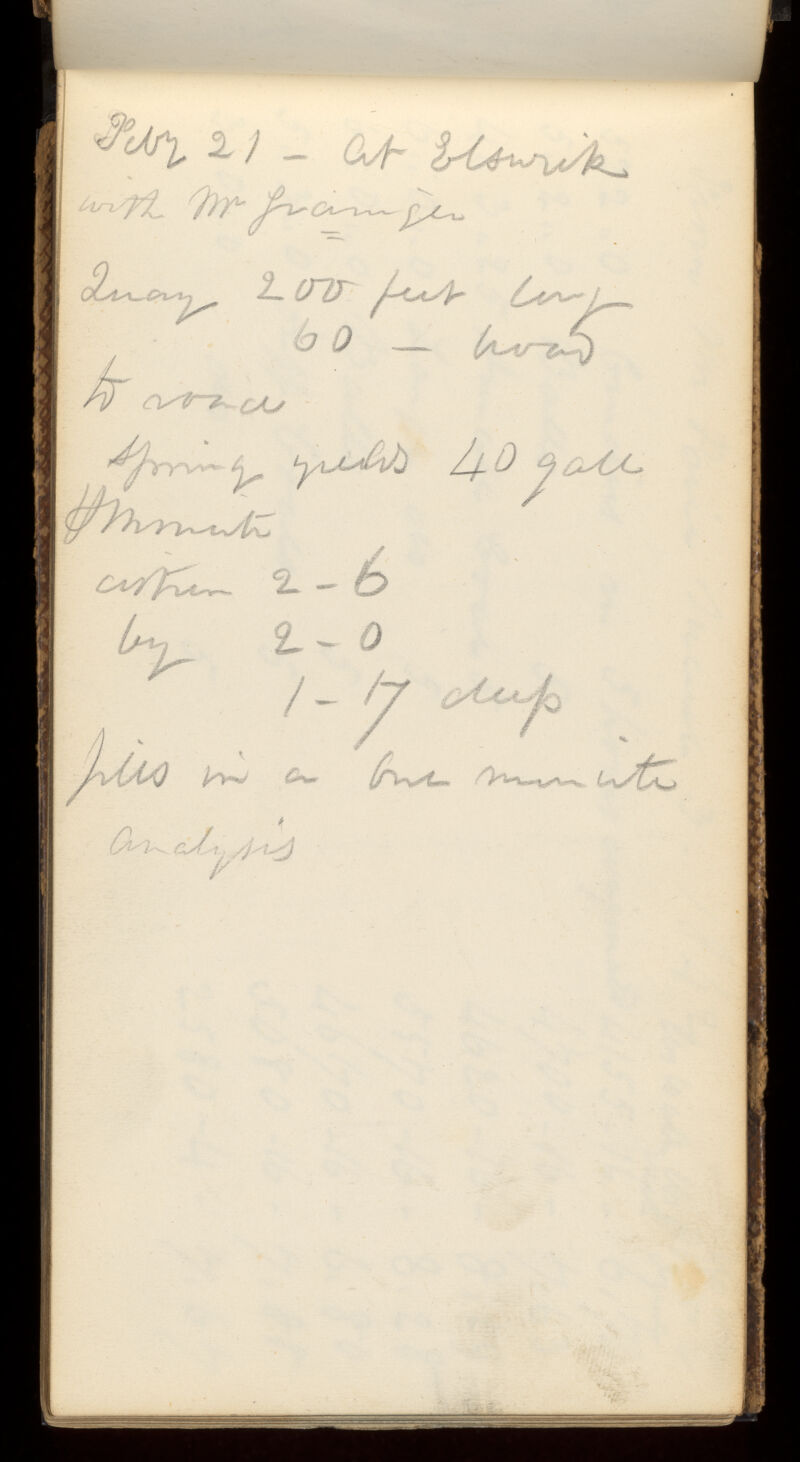 Feby 21 - At Elswick
with Mr Grainger
Quay 200 feet long
60 - broad
to road
Spring yields 40 gall
℔ Minute
cistern 2-6
by 2-0
1-17 deep
fills in a one minute
Analysis